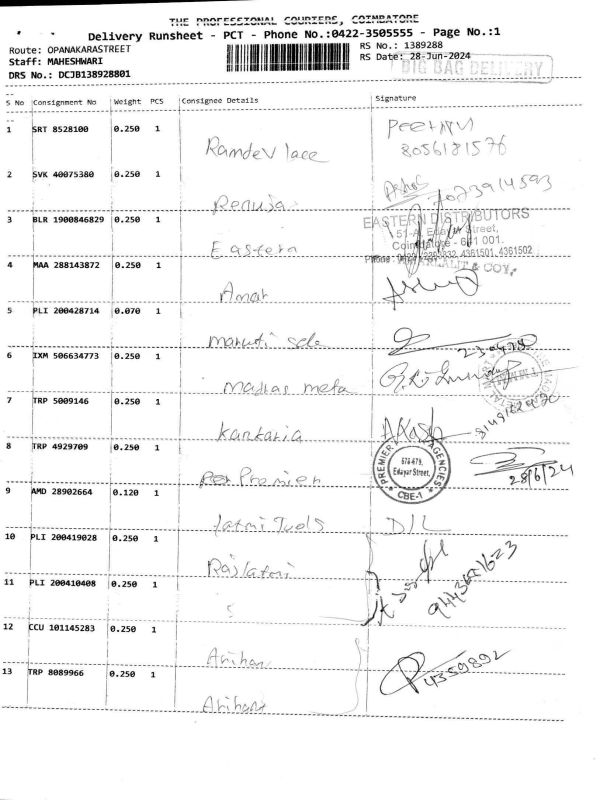 THE PROFESSIONAL COURIERS, COIMBATORE
Delivery Runsheet - PCT - Phone No.:0422-3505555 - Page No.:1
Route: OPANAKARASTREET
RS No.: 1389288
Staff: MAHESHWARI
RS Date: 28-Jun-2024
DRS No.: DCJB138928801
BIG BAG DELIVERY
S No Consignment No Weight PCS Consignee Details Signature
1 SRT 8528100 0.250 1
Ramdev lace
8056181576
2 SVK 40075380 0.250 1
Renuja
7023914593
3 BLR 1900846829 0.250 1
Eastern
EASTERN DISTRIBUTORS
51-A, Edayar Street,
Coimbatore - 641 001.
4361501, 4361502
4 MAA 288143872 0.250 1
Amar
5 PLI 200428714 0.070 1
maruti sele
6 IXM 506634773 0.250 1
madras meta
7 TRP 5009146 0.250 1
Kankaria
AKash
8 TRP 4929709 0.250 1
Premier
PREMIER AGENCIES
678-679,
Edayar Street,
CBE-1
28/6/24
9 AMD 28902664 0.120 1
laxmi Tools
D/L
10 PLI 200419028 0.250 1
Rajlaxmi
11 PLI 200410408 0.250 1
12 CCU 101145283 0.250 1
Arihan
13 TRP 8089966 0.250 1
Arihant
4359892